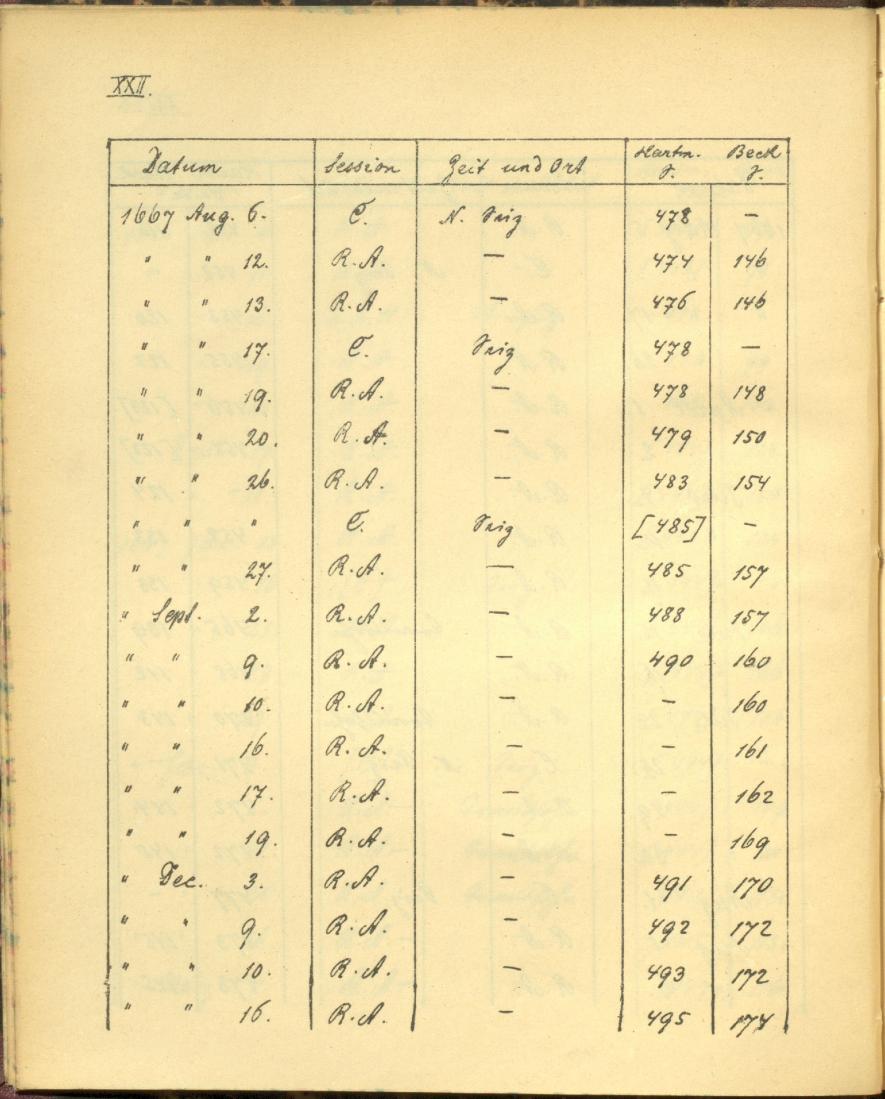 XXII.
Datum Session Zeit und Ort Hartm. S. Beck S.
1667 Aug. 6. C. N. 478 —
" " 12. R. A. — 474 146
" " 13. R. A. — 476 146
" " 17. C. 478 —
" " 19. R. A. — 478 148
" " 20. R. A. — 479 150
" " 26. R. A. — 483 154
" " " C. [485] —
" " 27. R. A. — 485 157
" Sept. 2. R. A. — 488 157
" " 9. R. A. — 490 160
" " 10. R. A. — — 160
" " 16. R. A. — — 161
" " 17. R. A. — — 162
" " 19. R. A. — — 169
" Dec. 3. R. A. — 491 170
" " 9. R. A. — 492 172
" " 10. R. A. — 493 172
" " 16. R. A. — 495 174